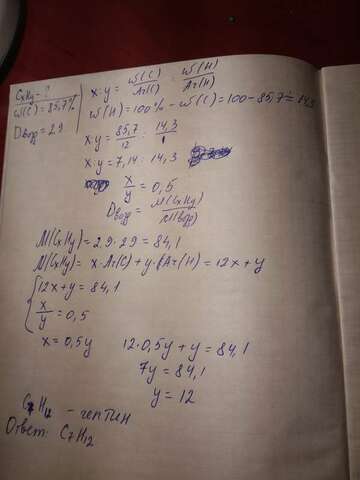 CxHy - ?
W(C) = 85,7%
Dвозд = 2,9
x:y = W(C)/Ar(C) : W(H)/Ar(H)
W(H) = 100% - W(C) = 100 - 85,7 = 14,3
x:y = 85,7/12 : 14,3/1
x:y = 7,14 : 14,3
x/y = 0,5
Dвозд = M(CxHy)/M(возд)
M(CxHy) = 2,9·29 = 84,1
M(CxHy) = x·Ar(C) + y·Ar(H) = 12x+y
12x+y = 84,1
x/y = 0,5
x = 0,5y 12·0,5y + y = 84,1
7y = 84,1
y = 12
C7H12 - гептин
Ответ: C7H12